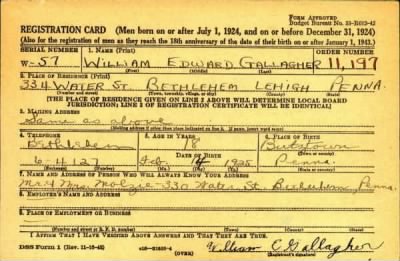 Form Approved
Budget Bureau No. 33-R012-42
REGISTRATION CARD (Men born on or after July 1, 1924, and on or before December 31, 1924)
(Also for the registration of men as they reach the 18th anniversary of the date of their birth on or after January 1, 1943.)
SERIAL NUMBER 1. NAME (Print)
W-57 WILLIAM EDWARD GALLAGHER 11,197
2. PLACE OF RESIDENCE (Print)
334 WATER ST. BETHLEHEM LEHIGH PENNA.
(Number and street) (Town, township, village, or city) (County) (State)
[THE PLACE OF RESIDENCE GIVEN ON LINE 2 ABOVE WILL DETERMINE LOCAL BOARD
JURISDICTION; LINE 2 OF REGISTRATION CERTIFICATE WILL BE IDENTICAL]
3. MAILING ADDRESS
Same as above
[Mailing address if other than place indicated on line 2. If same, insert word same]
4. TELEPHONE 5. AGE IN YEARS 6. PLACE OF BIRTH
Bethlehem 18
DATE OF BIRTH
6-4127 Feb. 14 1925 Penna.
7. NAME AND ADDRESS OF PERSON WHO WILL ALWAYS KNOW YOUR ADDRESS
Mr & Mrs 330 Water St. Bethlehem, Penna.
8. EMPLOYER'S NAME AND ADDRESS
9. PLACE OF EMPLOYMENT OR BUSINESS
(Number and street or R. F. D. number) (Town) (County) (State)
I AFFIRM THAT I HAVE VERIFIED ABOVE ANSWERS AND THAT THEY ARE TRUE.
DSS Form 1 (Rev. 11-16-42) (OVER) William E Gallagher
(Registrant's signature)